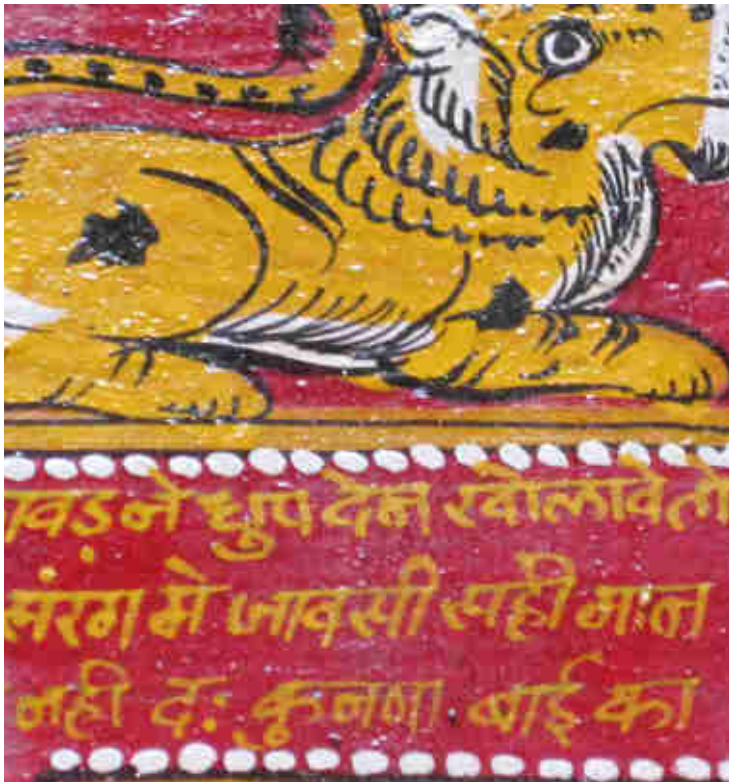 ावड ने धुप देन खोलावे तो
संरग मे जावसी सही मान
नही दः कुनणा बाई का